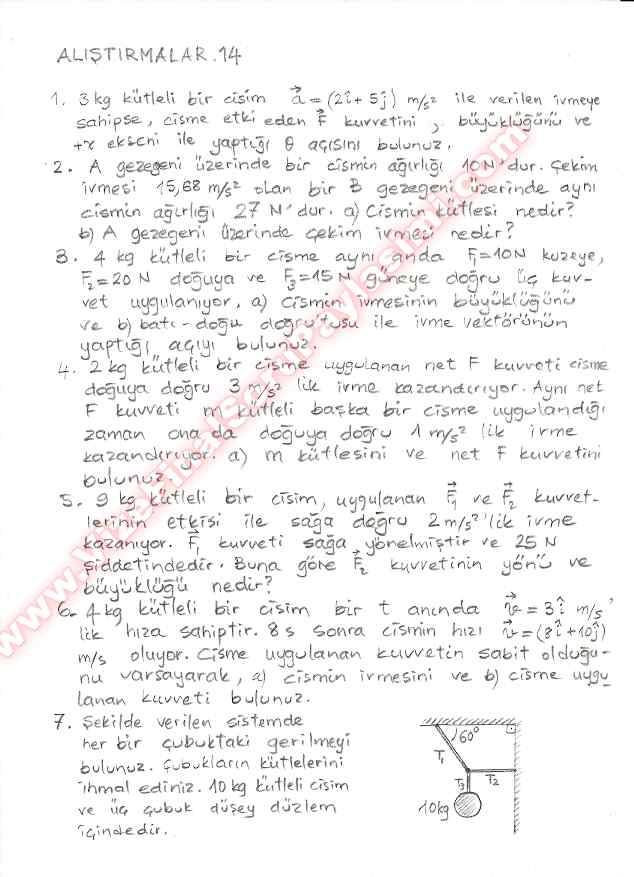 ALIŞTIRMALAR.14
1. 3 kg kütleli bir cisim a⃗ = (2î + 5ĵ) m/s² ile verilen ivmeye
sahipse, cisme etki eden F⃗ kuvvetini, büyüklüğünü ve
+x ekseni ile yaptığı θ açısını bulunuz.
2. A gezegeni üzerinde bir cismin ağırlığı 10N'dur. Çekim
ivmesi 15,68 m/s² olan bir B gezegeni üzerinde aynı
cismin ağırlığı 27 N'dur. a) Cismin kütlesi nedir?
b) A gezegeni üzerinde çekim ivmesi nedir?
3. 4 kg kütleli bir cisme aynı anda F₁=10N kuzeye,
F₂=20 N doğuya ve F₃=15N güneye doğru üç kuv-
vet uygulanıyor, a) cismin ivmesinin büyüklüğünü
ve b) batı-doğu doğrultusu ile ivme vektörünün
yaptığı açıyı bulunuz.
4. 2 kg kütleli bir cisme uygulanan net F kuvveti cisme
doğuya doğru 3 m/s² lik ivme kazandırıyor. Aynı net
F kuvveti m kütleli başka bir cisme uygulandığı
zaman ona da doğuya doğru 1 m/s² lik ivme
kazandırıyor. a) m kütlesini ve net F kuvvetini
bulunuz
5. 9 kg kütleli bir cisim, uygulanan F⃗₁ ve F⃗₂ kuvvet-
lerinin etkisi ile sağa doğru 2 m/s²'lik ivme
kazanıyor. F⃗₁ kuvveti sağa yönelmiştir ve 25 N
şiddetindedir. Buna göre F⃗₂ kuvvetinin yönü ve
büyüklüğü nedir?
6. 4 kg kütleli bir cisim bir t anında v⃗ = 3î m/s'
lik hıza sahiptir. 8 s sonra cismin hızı v⃗ = (8î + 10ĵ)
m/s oluyor. Cisme uygulanan kuvvetin sabit olduğu-
nu varsayarak, a) cismin ivmesini ve b) cisme uygu
lanan kuvveti bulunuz.
7. Şekilde verilen sistemde
her bir çubuktaki gerilmeyi
bulunuz. Çubukların kütlelerini
ihmal ediniz. 10 kg kütleli cisim
ve üç çubuk düşey düzlem
içindedir.
60°
T₁
T₃ T₂
10kg
www.VizeFinalSoruPaylasimi.com